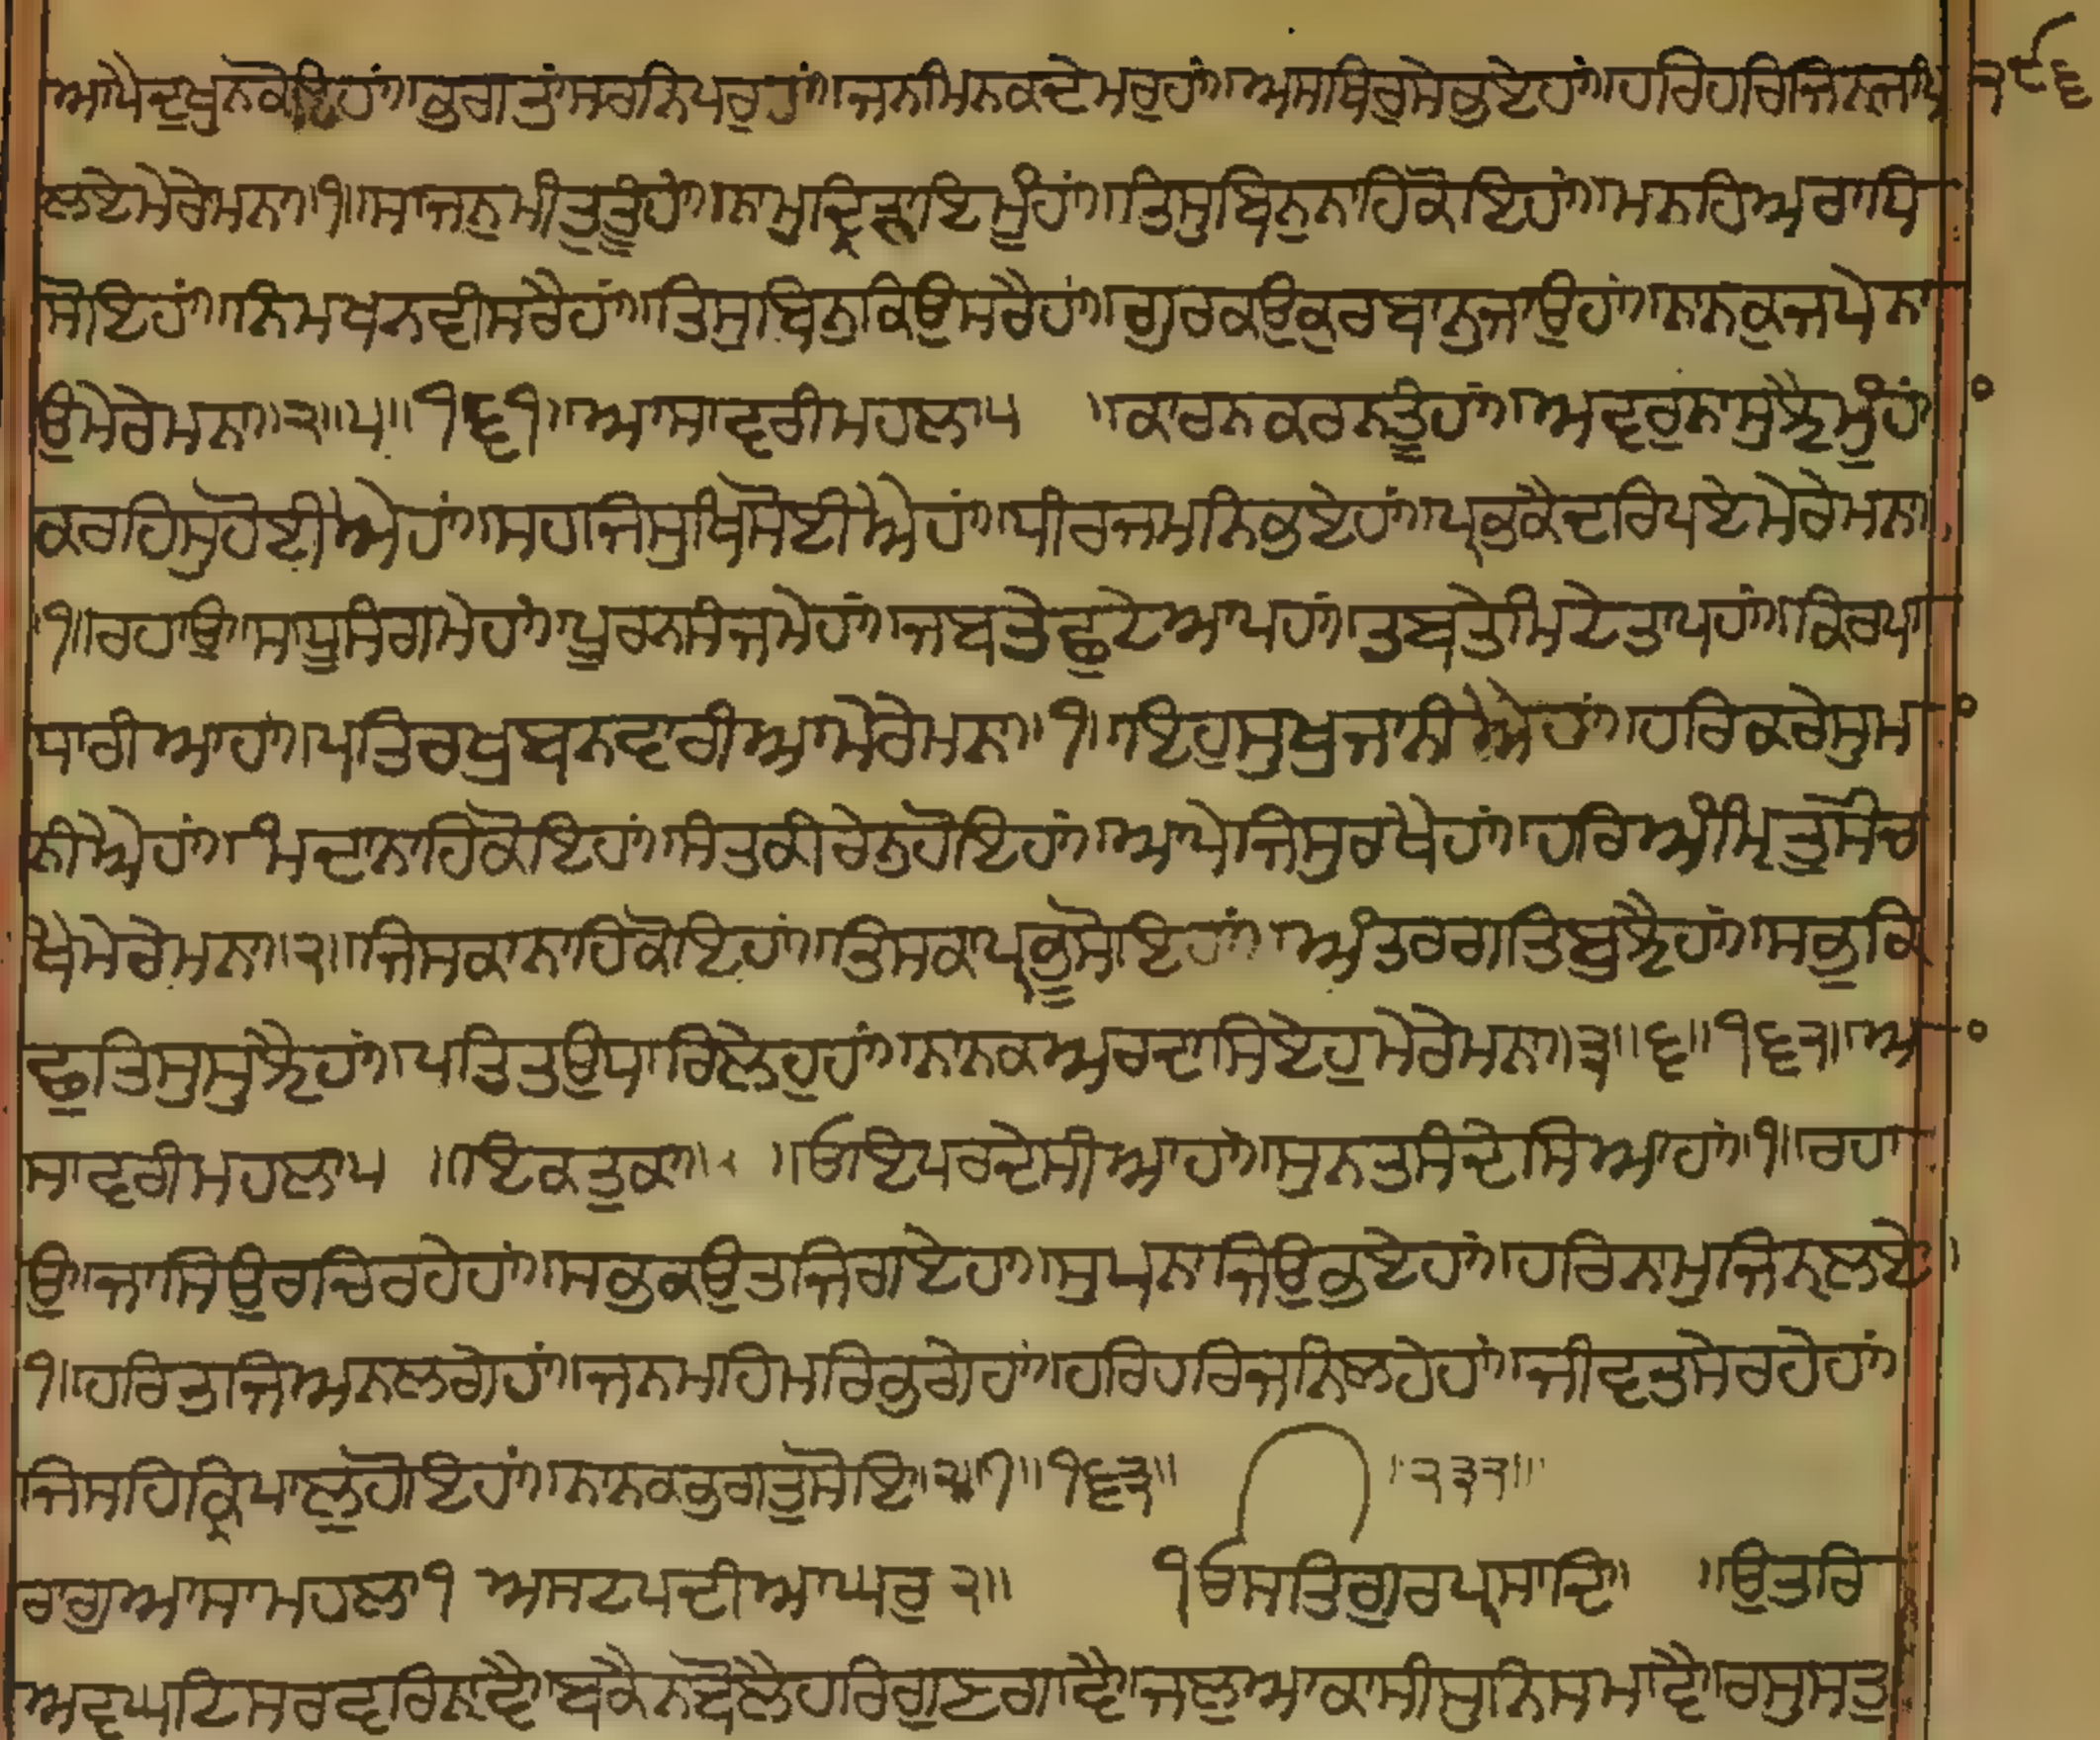 ਆਪੈਦੂਖੁਨਕੋਇਹਾਂ॥ਭਗਤਾਸਰਨਿਪਰੁਹਾਂ॥ਜਨਮਿਨਕਦੇਮਰੁਹਾਂ॥ਅਸਥਿਰੁਸੇਭਏਹਾਂ॥ਹਰਿਹਰਿਜਿਨ੍ਹਜਪਿ ੨੯੬
ਲਏਮੇਰੇਮਨਾ॥੧॥ਸਾਜਨੁਮੀਤੁਤੂੰਹਾਂ॥ਨਾਮੁਦ੍ਰਿੜਾਇਮੂੰਹਾਂ॥ਤਿਸੁਬਿਨੁਨਾਹਿਕੋਇਹਾਂ॥ਮਨਹਿਅਰਾਧਿ
ਸੋਇਹਾਂ॥ਨਿਮਖਨਵੀਸਰੈਹਾਂ॥ਤਿਸੁਬਿਨੁਕਿਉਸਰੈਹਾਂ॥ਗੁਰਕਉਕੁਰਬਾਨੁਜਾਉਹਾਂ॥ਨਾਨਕੁਜਪੇਨਾ
ਉਮੇਰੇਮਨਾ॥੨॥੫॥੧੬੧॥ਆਸਾਵਰੀਮਹਲਾ੫ ॥ਕਾਰਨਕਰਨਤੂੰਹਾਂ॥ਅਵਰੁਨਾਸੁਝੈਮੂੰਹਾਂ॥
ਕਰਹਿਸੁਹੋਈਐਹਾਂ॥ਸਹਜਿਸੁਖਿਸੋਈਐਹਾਂ॥ਧੀਰਜਮਨਿਭਏਹਾਂ॥ਪ੍ਰਭਕੈਦਰਿਪਏਮੇਰੇਮਨਾ॥
੧॥ਰਹਾਉ॥ਸਾਧੂਸੰਗਮੇਹਾਂ॥ਪੂਰਨਸੰਜਮੇਹਾਂ॥ਜਬਤੇਛੁਟੇਆਪਹਾਂ॥ਤਬਤੇਮਿਟੇਤਾਪਹਾਂ॥ਕਿਰਪਾ
ਧਾਰੀਆਹਾਂ॥ਪਤਿਰਖੁਬਨਵਾਰੀਆਮੇਰੇਮਨਾ॥੧॥ਇਹੁਸੁਖੁਜਾਨੀਐਹਾਂ॥ਹਰਿਕਰੇਸੁਮਾ
ਨੀਐਹਾਂ॥ਮੰਦਾਨਾਹਿਕੋਇਹਾਂ॥ਸੰਤਕੀਰੇਨਹੋਇਹਾਂ॥ਆਪੇਜਿਸੁਰਖੈਹਾਂ॥ਹਰਿਅੰਮ੍ਰਿਤੁਸੋਚ
ਖੈਮੇਰੇਮਨਾ॥੨॥ਜਿਸਕਾਨਾਹਿਕੋਇਹਾਂ॥ਤਿਸਕਾਪ੍ਰਭੂਸੋਇਹਾਂ॥ਅੰਤਰਗਤਿਬੁਝੈਹਾਂ॥ਸਭੁਕਿ
ਛੁਤਿਸੁਸੁਝੈਹਾਂ॥ਪਤਿਤਉਧਾਰਿਲੇਹੁਹਾਂ॥ਨਾਨਕਅਰਦਾਸਿਏਹੁਮੇਰੇਮਨਾ॥੩॥੬॥੧੬੨॥ਆ
ਸਾਵਰੀਮਹਲਾ੫ ॥ਇਕਤੁਕਾ॥ ॥ਓਇਪਰਦੇਸੀਆਹਾਂ॥ਸੁਨਤਸੰਦੇਸਿਆਹਾਂ॥੧॥ਰਹਾ
ਉ॥ਜਾਸਿਉਰਾਚਿਰਹੇਹਾਂ॥ਸਭਕਉਤਜਿਗਏਹਾਂ॥ਸੁਪਨਾਜਿਉਭਏਹਾਂ॥ਹਰਿਨਾਮੁਜਿਨ੍ਹਿਲਏ॥
੧॥ਹਰਿਤਜਿਅਨਲਗੇਹਾਂ॥ਜਨਮਹਿਮਰਿਭਗੇਹਾਂ॥ਹਰਿਹਰਿਜਨਿਲਹੇਹਾਂ॥ਜੀਵਤਸੇਰਹੇਹਾਂ॥
ਜਿਸਹਿਕ੍ਰਿਪਾਲੁਹੋਇਹਾਂ॥ਨਾਨਕਭਗਤੁਸੋਇ॥੨॥੭॥੧੬੩॥ ॥੨੩੨॥
ਰਾਗੁਆਸਾਮਹਲਾ੧ ਅਸਟਪਦੀਆਘਰੁ੨॥ ੴਸਤਿਗੁਰਪ੍ਰਸਾਦਿ॥ ॥ਉਤਰਿ
ਅਵਘਟਿਸਰਵਰਿਨ੍ਹਾਵੈ॥ਬਕੈਨਬੋਲੈਹਰਿਗੁਣਗਾਵੈ॥ਜਲੁਆਕਾਸੀਸੁੰਨਿਸਮਾਵੈ॥ਰਸੁਸਤੁ